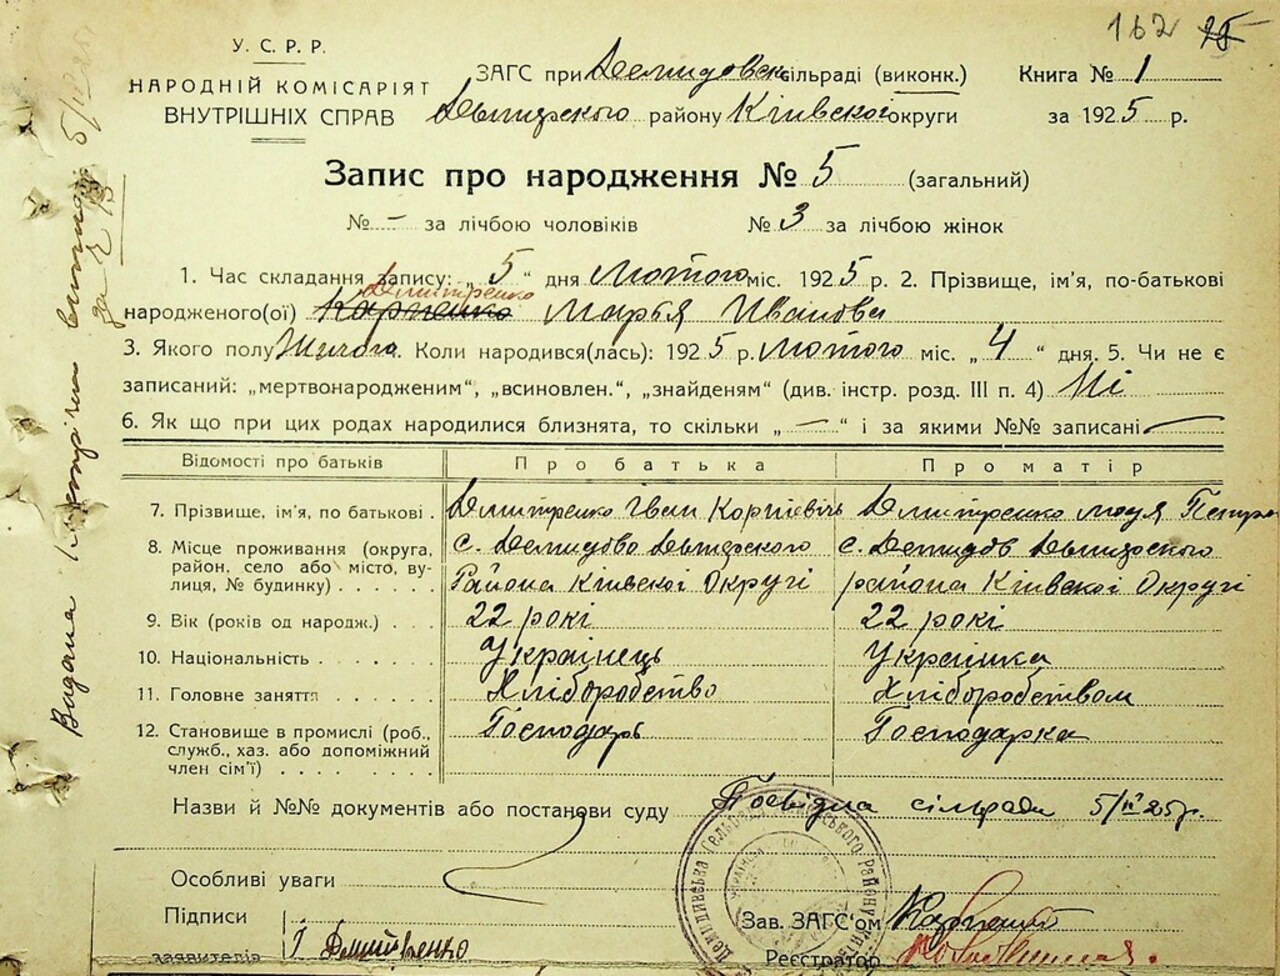 162 25
У. С. Р. Р.
НАРОДНІЙ КОМІСАРІЯТ
ВНУТРІШНІХ СПРАВ
ЗАГС при Демидовск сільраді (виконк.) Книга № 1
Дымерского району Київскоі округи за 1925 р.
Запис про народження № 5 (загальний)
№ — за лічбою чоловіків № 3 за лічбою жінок
1. Час складання запису: „ 5 “ дня Лютого міс. 1925 р. 2. Прізвище, ім’я, по-батькові
Дмитренко
народженого(ої) Карпенко Марья Иванова
3. Якого полу Жіночого. Коли народився(лась): 1925 р. Лютого міс. „ 4 “ дня. 5. Чи не є
записаний: „мертвонародженим“, „всиновлен.“, „знайденям“ (див. інстр. розд. III п. 4) Ні
6. Як що при цих родах народилися близнята, то скільки „ — “ і за якими №№ записані —
Відомості про батьків Про батька Про матір
7. Прізвище, ім’я, по батькові . Дмитренко Іван Корнієвічь Дмитренко Петро
8. Місце проживання (округа, с. Демидово Дымерского с. Демидов Дымерского
район, село або місто, ву-
лиця, № будинку) . . . . . . Района Київскоі Округі района Київскоі Округі
9. Вік (років од народж.) . . . 22 рокі 22 рокі
10. Національність . . . . . . Українець Українка
11. Головне заняття . . . . . Хліборобство Хліборобством
12. Становище в промислі (роб., Господарь Господарка
служб., хаз. або допоміжний
член сім’ї) . . . . . . . .
Назви й №№ документів або постанови суду Посвідка сільради 5/II 25 р.
Особливі уваги
Підписи Зав. ЗАГС’ом
заявителів І Дмитренко Реєстратор
Видана метрічна 5/II 25
за № 5